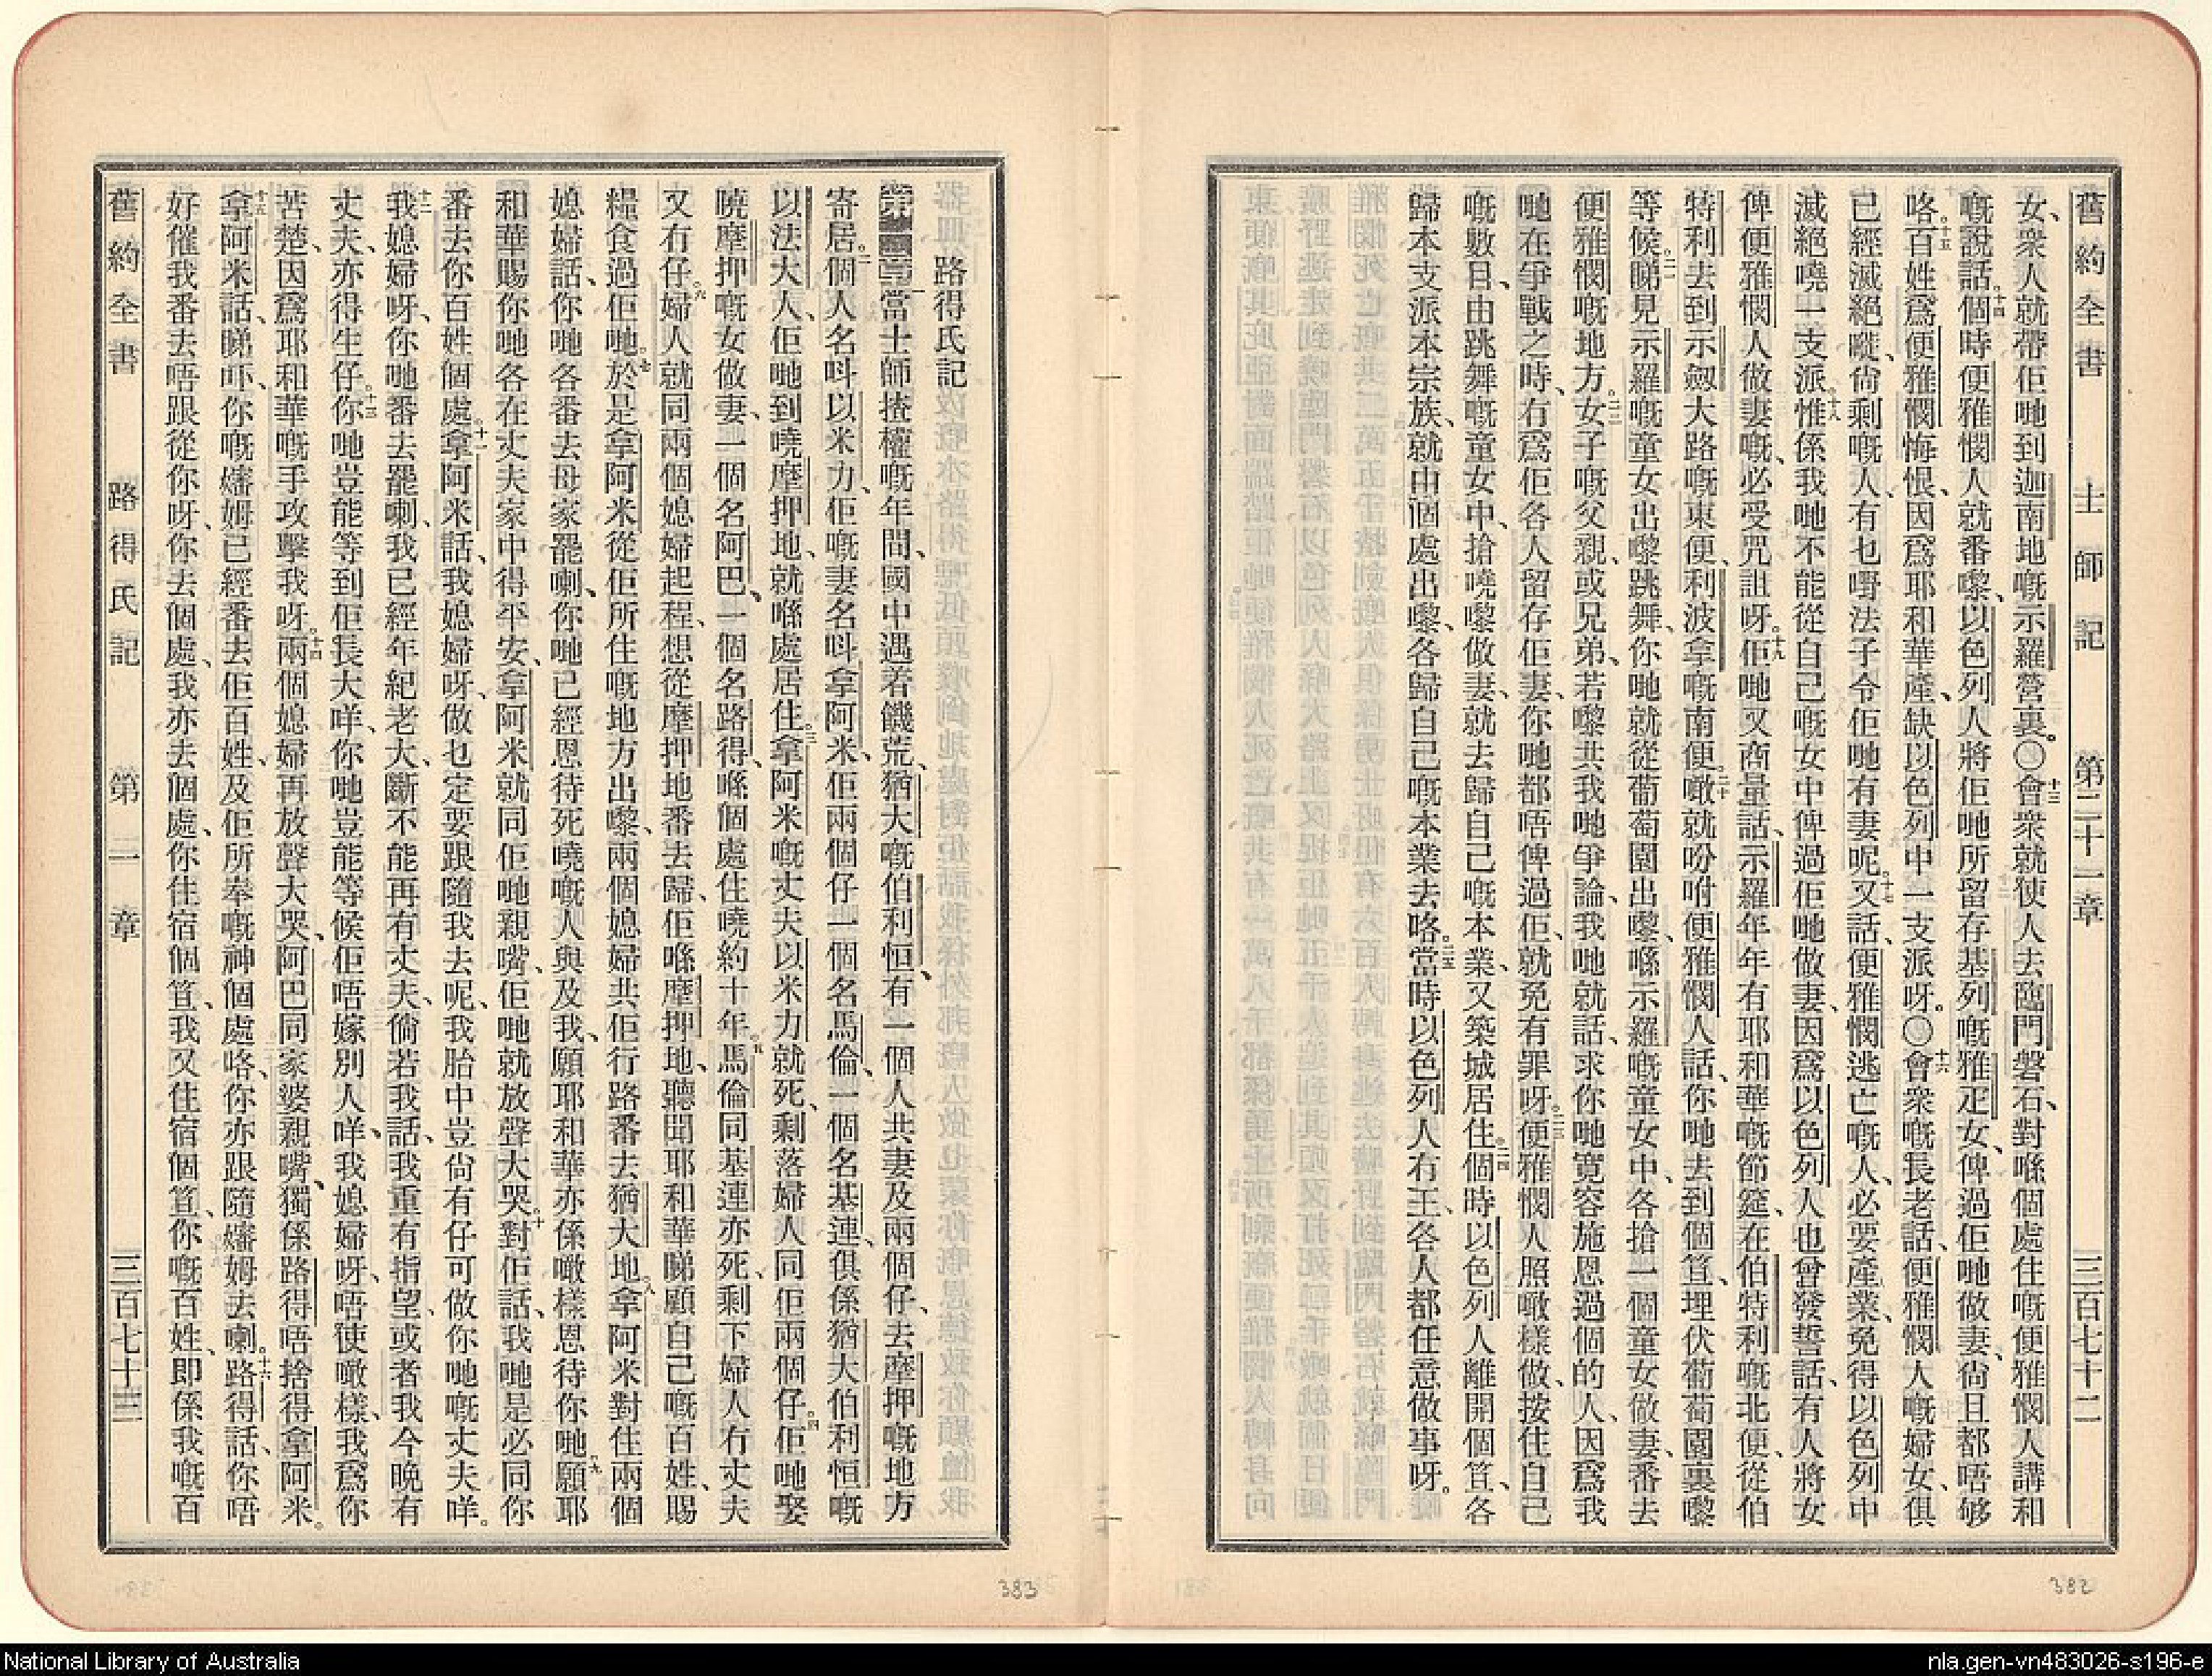 舊約全書　士師記　第二十一章　三百七十二
女、衆人就帶佢哋到迦南地嘅示羅營裏。〇十三會衆就使人去臨門磐石、對喺個處住嘅便雅憫人講和
嘅說話。十四個時便雅憫人就番嚟、以色列人將佢哋所留存基列嘅雅疋女、俾過佢哋做妻、尙且都唔够
咯。十五百姓爲便雅憫悔恨、因爲耶和華產、缺以色列中一支派呀。〇十六會衆嘅長老話、便雅憫人嘅婦女、俱
已經滅絕嘥、尙剩嘅人、有乜嘢法子令佢哋有妻呢。十七又話、便雅憫逃亡嘅人、必要產業、免得以色列中
滅絕嘵一支派。十八惟係我哋不能從自己嘅女中俾過佢哋做妻、因爲以色列人也曾發誓話、有人將女
俾便雅憫人做妻嘅、必受咒詛呀。十九佢哋又商量話、示羅年年有耶和華嘅節筵、在伯特利嘅北便、從伯
特利去到示劍大路嘅東便、利波拿嘅南便。二十噉就吩咐便雅憫人話、你哋去到個笪、埋伏葡萄園裏嚟
等候。二一睇見示羅嘅童女出嚟跳舞、你哋就從葡萄園出嚟、喺示羅嘅童女中、各搶一個童女做妻、番去
便雅憫嘅地方。二二女子嘅父親、或兄弟、若嚟共我哋爭論、我哋就話、求你哋寬容施恩過個的人、因爲我
哋在爭戰之時、冇爲佢各人留存佢妻、你哋都唔俾過佢、就免有罪呀。二三便雅憫人照噉樣做、按住自己
嘅數目、由跳舞嘅童女中、搶嘵嚟做妻、就去歸自己嘅本業、又築城居住。二四個時以色列人離開個笪、各
歸本支派本宗族、就由個處出嚟、各歸自己嘅本業去咯。二五當時以色列人冇王、各人都任意做事呀。
路得氏記
第一章一當士師揸權嘅年間、國中遇着饑荒、猶大嘅伯利恒、有一個人共妻及兩個仔、去摩押嘅地方
寄居。二個人名呌以米力、佢嘅妻名呌拿阿米、佢兩個仔一個名馬倫、一個名基連、俱係猶大伯利恒嘅
以法大人、佢哋到嘵摩押地、就喺處居住。三拿阿米嘅丈夫以米力就死、剩落婦人同佢兩個仔。四佢哋娶
嘵摩押嘅女做妻、一個名阿巴、一個名路得、喺個處住嘵約十年。五馬倫同基連亦死、剩下婦人冇丈夫
又冇仔。六婦人就同兩個媳婦起程、想從摩押地番去歸、佢喺摩押地、聽聞耶和華睇顧自己嘅百姓、賜
糧食過佢哋。七於是拿阿米從佢所住嘅地方出嚟、兩個媳婦共佢行路番去猶大地。八拿阿米對住兩個
媳婦話、你哋各番去母家罷喇、你哋已經恩待死嘵嘅人與及我、願耶和華亦係噉樣恩待你哋。九願耶
和華賜你哋各在丈夫家中得平安、拿阿米就同佢哋親嘴、佢哋就放聲大哭。十對佢話、我哋是必同你
番去你百姓個處。十一拿阿米話、我媳婦呀、做乜定要跟隨我去呢、我胎中豈尙有仔可做你哋嘅丈夫咩。
十二我媳婦呀、你哋番去罷喇、我已經年紀老大、斷不能再有丈夫、倘若我話、我重有指望、或者我今晚有
丈夫、亦得生仔。十三你哋豈能等到佢長大咩、你哋豈能等候佢唔嫁別人咩、我媳婦呀、唔使噉樣、我爲你
苦楚、因爲耶和華嘅手攻擊我呀。十四兩個媳婦再放聲大哭、阿巴同家婆親嘴、獨係路得唔捨得拿阿米。
十五拿阿米話、睇吓、你嘅嬸姆已經番去佢百姓、及佢所奉嘅神個處咯、你亦跟隨嬸姆去喇。十六路得話、你唔
好催我番去唔跟從你呀、你去個處、我亦去個處、你住宿個笪、我又住宿個笪、你嘅百姓、卽係我嘅百
舊約全書　路得氏記　第一章　三百七十三
383
382
National Library of Australia
nla.gen-vn483026-s196-e